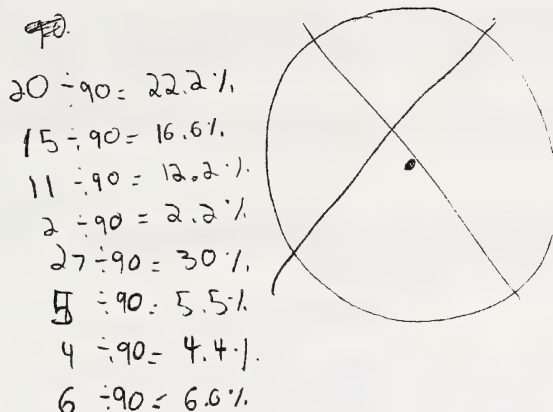 20 ÷ 90 = 22.2%
15 ÷ 90 = 16.6%
11 ÷ 90 = 12.2%
2 ÷ 90 = 2.2%
27 ÷ 90 = 30%
5 ÷ 90 = 5.5%
4 ÷ 90 = 4.4%
6 ÷ 90 = 6.6%